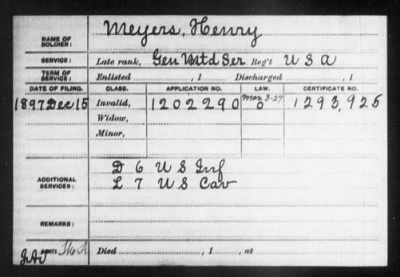 NAME OF SOLDIER: Meyers, Henry
SERVICE: Late rank, Gen Mtd Ser Reg't U S A
TERM OF SERVICE: Enlisted , 1 Discharged , 1
DATE OF FILING. CLASS. APPLICATION NO. LAW. CERTIFICATE NO.
1897 Dec 15 Invalid, 1202290 Mar 3-27 1293,925
Widow,
Minor,
ADDITIONAL SERVICES: D 6 U S Inf
L 7 U S Cav
REMARKS:
Died , 1 , at